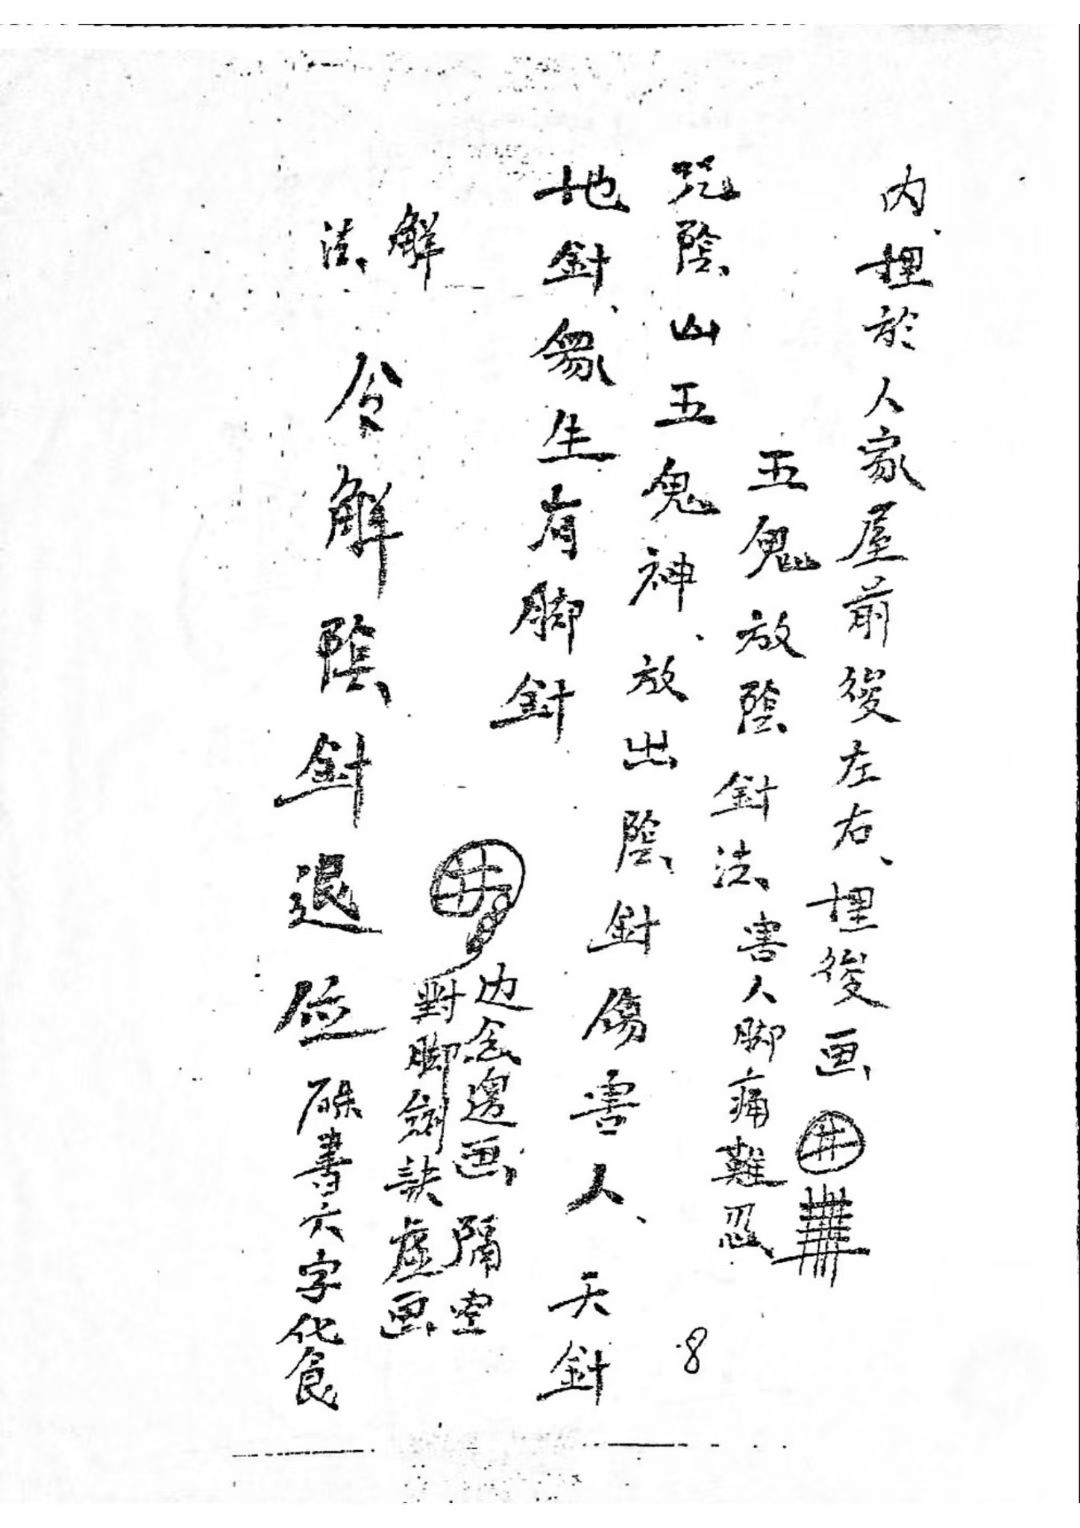 内、埋於人家屋前後左右、埋後画
五鬼放陰針法、害人脚痛難忍
咒陰山五鬼神、放出陰針傷害人、天針
地針、眾生有脚針
边念邊画、隔空
對脚劍訣虛画
解法
令解陰針退位 硃書六字化食
8